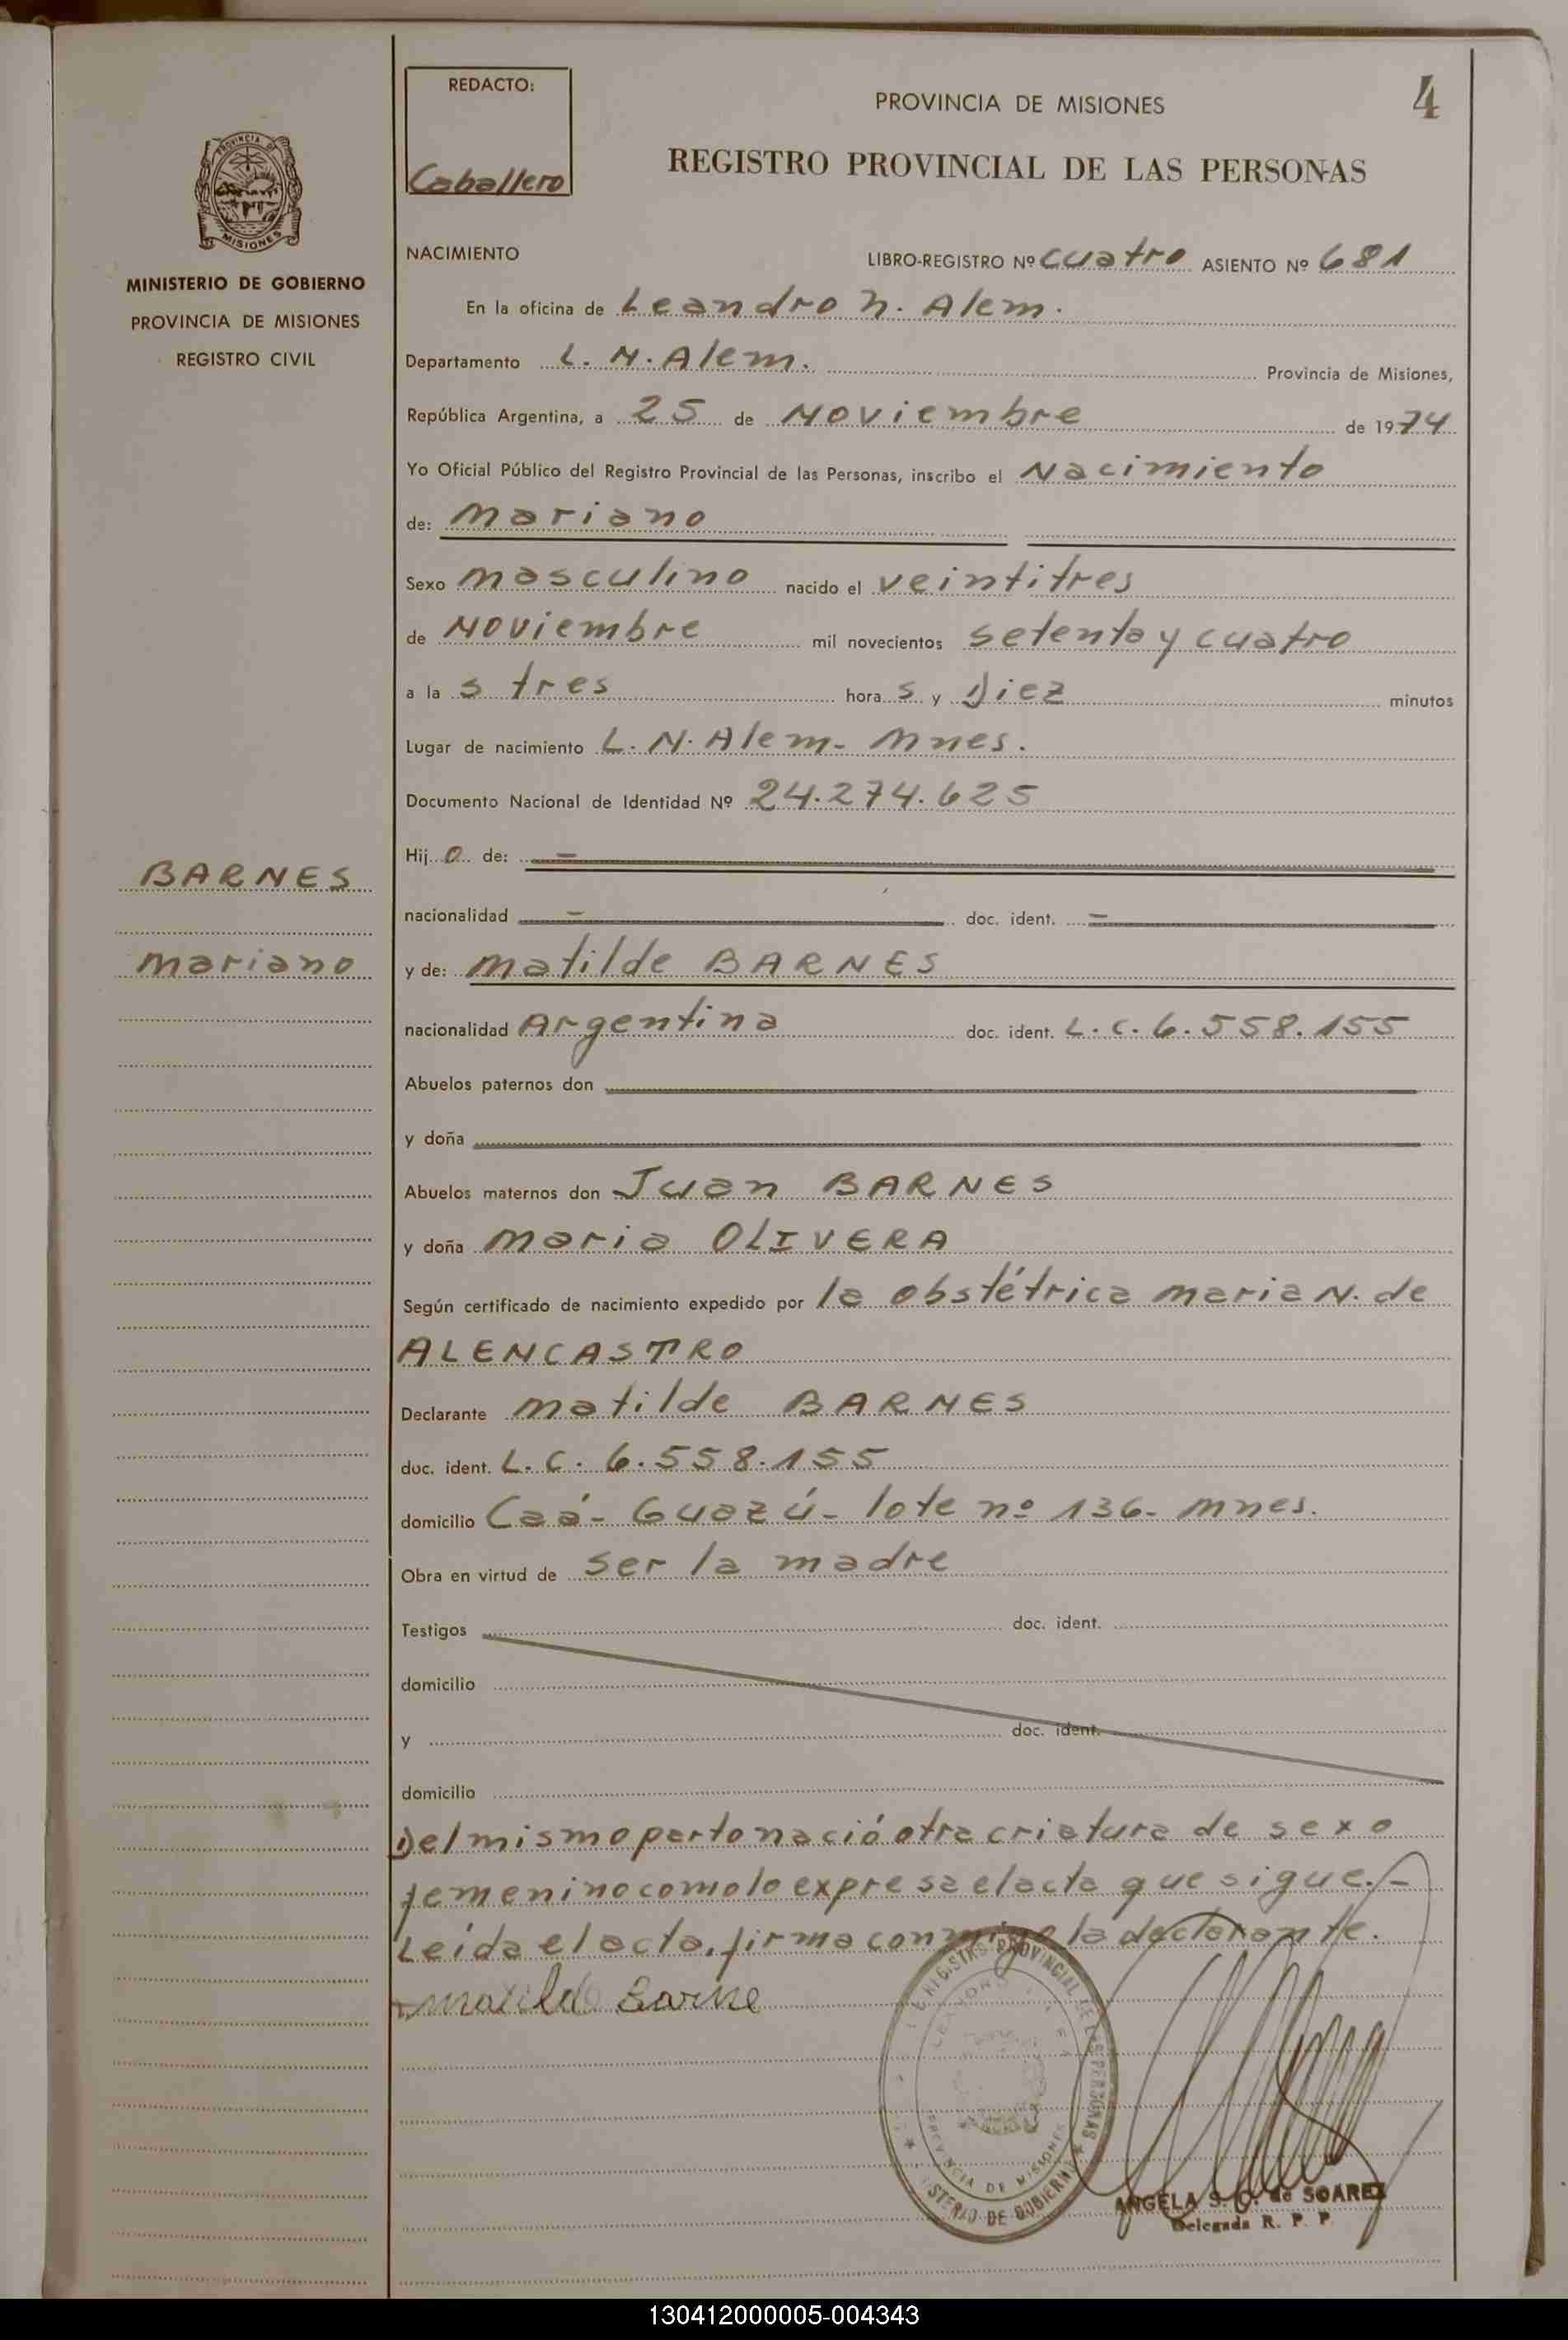 REDACTO:
Caballero
PROVINCIA DE MISIONES
4
REGISTRO PROVINCIAL DE LAS PERSONAS
PROVINCIA DE
MISIONES
MINISTERIO DE GOBIERNO
PROVINCIA DE MISIONES
REGISTRO CIVIL
NACIMIENTO LIBRO-REGISTRO Nº cuatro ASIENTO Nº 681
En la oficina de Leandro N. Alem.
Departamento L. N. Alem. Provincia de Misiones,
República Argentina, a 25 de Noviembre de 1974
Yo Oficial Público del Registro Provincial de las Personas, inscribo el Nacimiento
de: Mariano
Sexo masculino nacido el veintitres
de Noviembre mil novecientos setenta y cuatro
a la s tres hora s y Diez minutos
Lugar de nacimiento L. N. Alem - Mnes.
Documento Nacional de Identidad Nº 24.274.625
Hij o de: -
BARNES
nacionalidad - doc. ident. -
Mariano
y de: Matilde BARNES
nacionalidad Argentina doc. ident. L. C. 6.558.155
Abuelos paternos don
y doña
Abuelos maternos don Juan BARNES
y doña Maria OLIVERA
Según certificado de nacimiento expedido por la obstétrica Maria N. de
ALENCASTRO
Declarante Matilde BARNES
doc. ident. L. C. 6.558.155
domicilio Caá - Guazú - lote nº 136 - Mnes.
Obra en virtud de ser la madre
Testigos doc. ident.
domicilio
y doc. ident.
domicilio
Del mismo parto nació otra criatura de sexo
femenino como lo expresa el acta que sigue.-
Leída el acta, firma conmigo la declarante.
Matilde Barne
REGISTRO PROVINCIAL DE LAS PERSONAS
PROVINCIA DE MISIONES
DE GOBIERNO
ANGELA S. de SOAREZ
Delegada R. P. P.
130412000005-004343